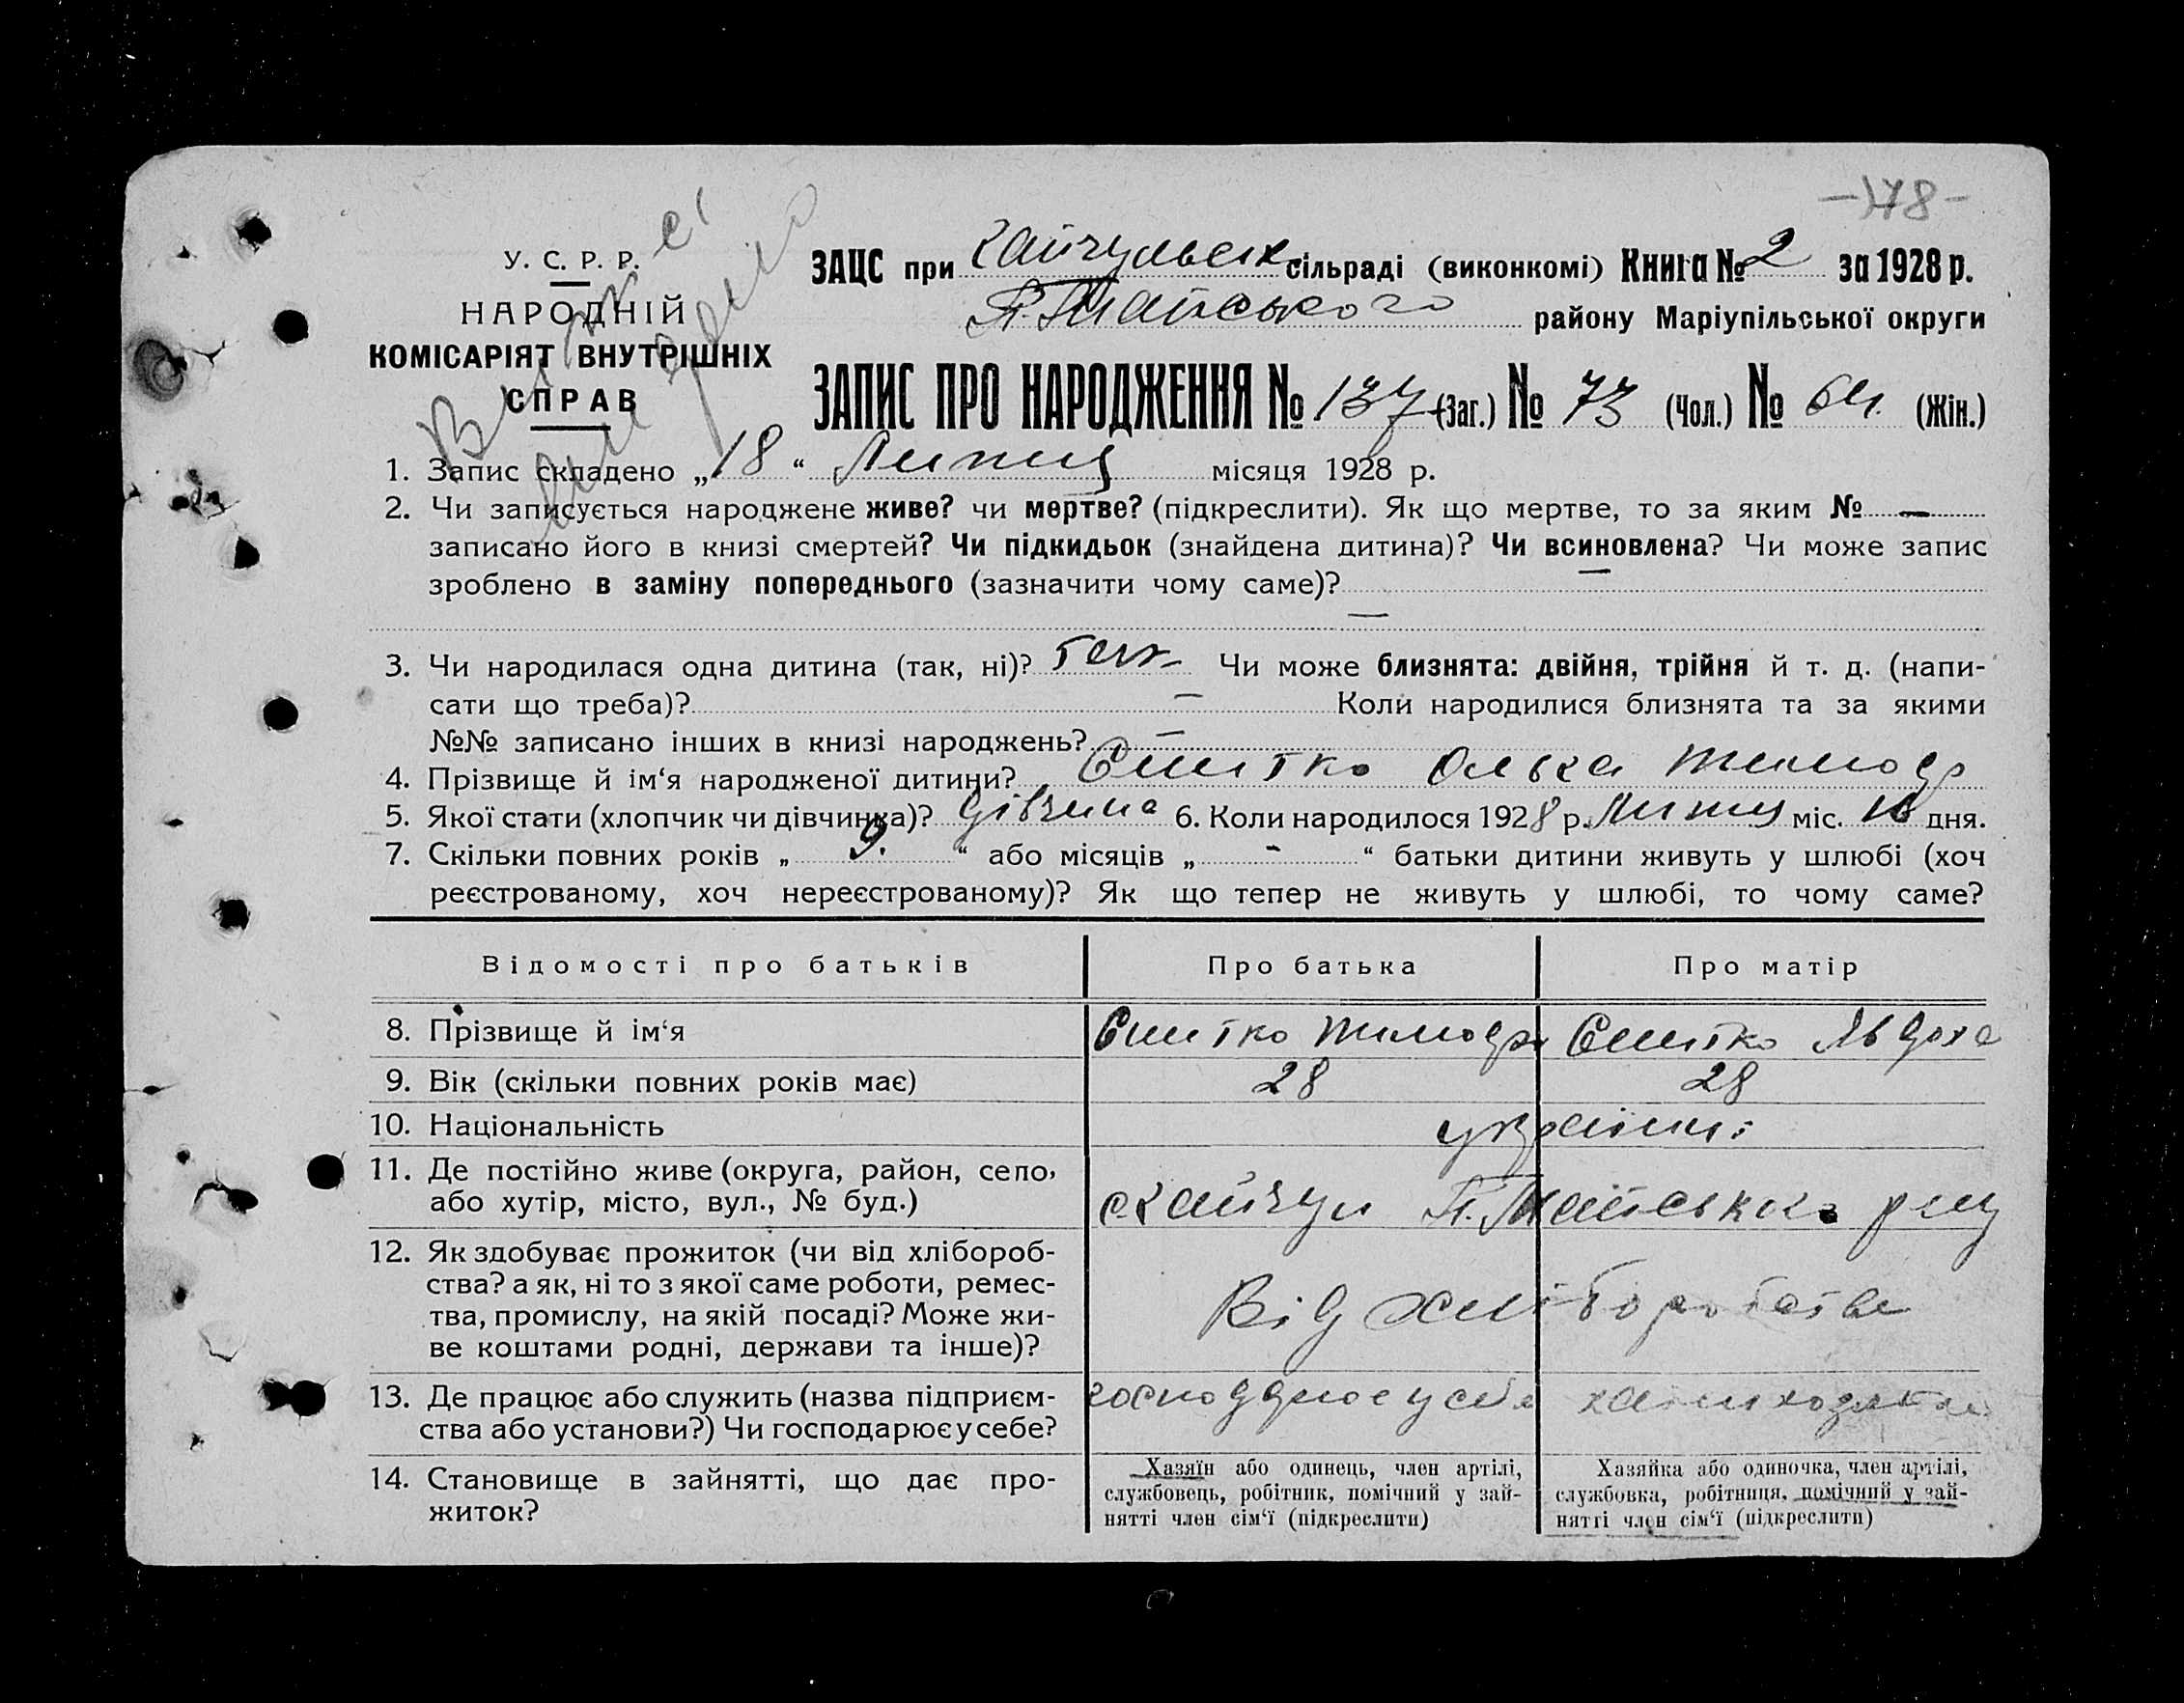 -178-
У. С. Р. Р.
НАРОДНІЙ
КОМІСАРІЯТ ВНУТРІШНІХ
СПРАВ
ЗАЦС при Гайчульск сільраді (виконкомі) Книга № 2 за 1928 р.
П. Майського району Маріупільської округи
ЗАПИС ПРО НАРОДЖЕННЯ № 137 (Заг.) № 73 (Чол.) № 64 (Жін.)
1. Запис складено „18“ Липня місяця 1928 р.
2. Чи записується народжене живе? чи мертве? (підкреслити). Як що мертве, то за яким № —
записано його в книзі смертей? Чи підкидьок (знайдена дитина)? Чи всиновлена? Чи може запис
зроблено в заміну попереднього (зазначити чому саме)? —
—
3. Чи народилася одна дитина (так, ні)? Так Чи може близнята: двійня, трійня й т. д. (напи-
сати що треба)? — Коли народилися близнята та за якими
№№ записано інших в книзі народжень? —
4. Прізвище й ім‘я народженої дитини? Снитко Ольга Тимофр
5. Якої стати (хлопчик чи дівчинка)? дівчина 6. Коли народилося 1928 р. Липня міс. 16 дня.
7. Скільки повних років „ 9. “ або місяців „ - “ батьки дитини живуть у шлюбі (хоч
реєстрованому, хоч нереєстрованому)? Як що тепер не живуть у шлюбі, то чому саме?
Відомості про батьків Про батька Про матір
8. Прізвище й ім‘я Снитко Тимофр Снитко Явдоха
9. Вік (скільки повних років має) 28 28
10. Національність українці
11. Де постійно живе (округа, район, село,
або хутір, місто, вул., № буд.) с Гайчул П. Майського рну
12. Як здобуває прожиток (чи від хлібороб-
ства? а як, ні то з якої саме роботи, ремес-
тва, промислу, на якій посаді? Може жи-
ве коштами родні, держави та інше)?
Від хліборобства
13. Де працює або служить (назва підприєм-
ства або установи?) Чи господарює у себе?
14. Становище в зайнятті, що дає про-
житок?
Хазяїн або одинець, член артілі,
службовець, робітник, помічний у зай-
нятті член сім‘ї (підкреслити)
Хазяйка або одиночка, член артілі,
службовка, робітниця, помічний у зай-
нятті член сім‘ї (підкреслити)